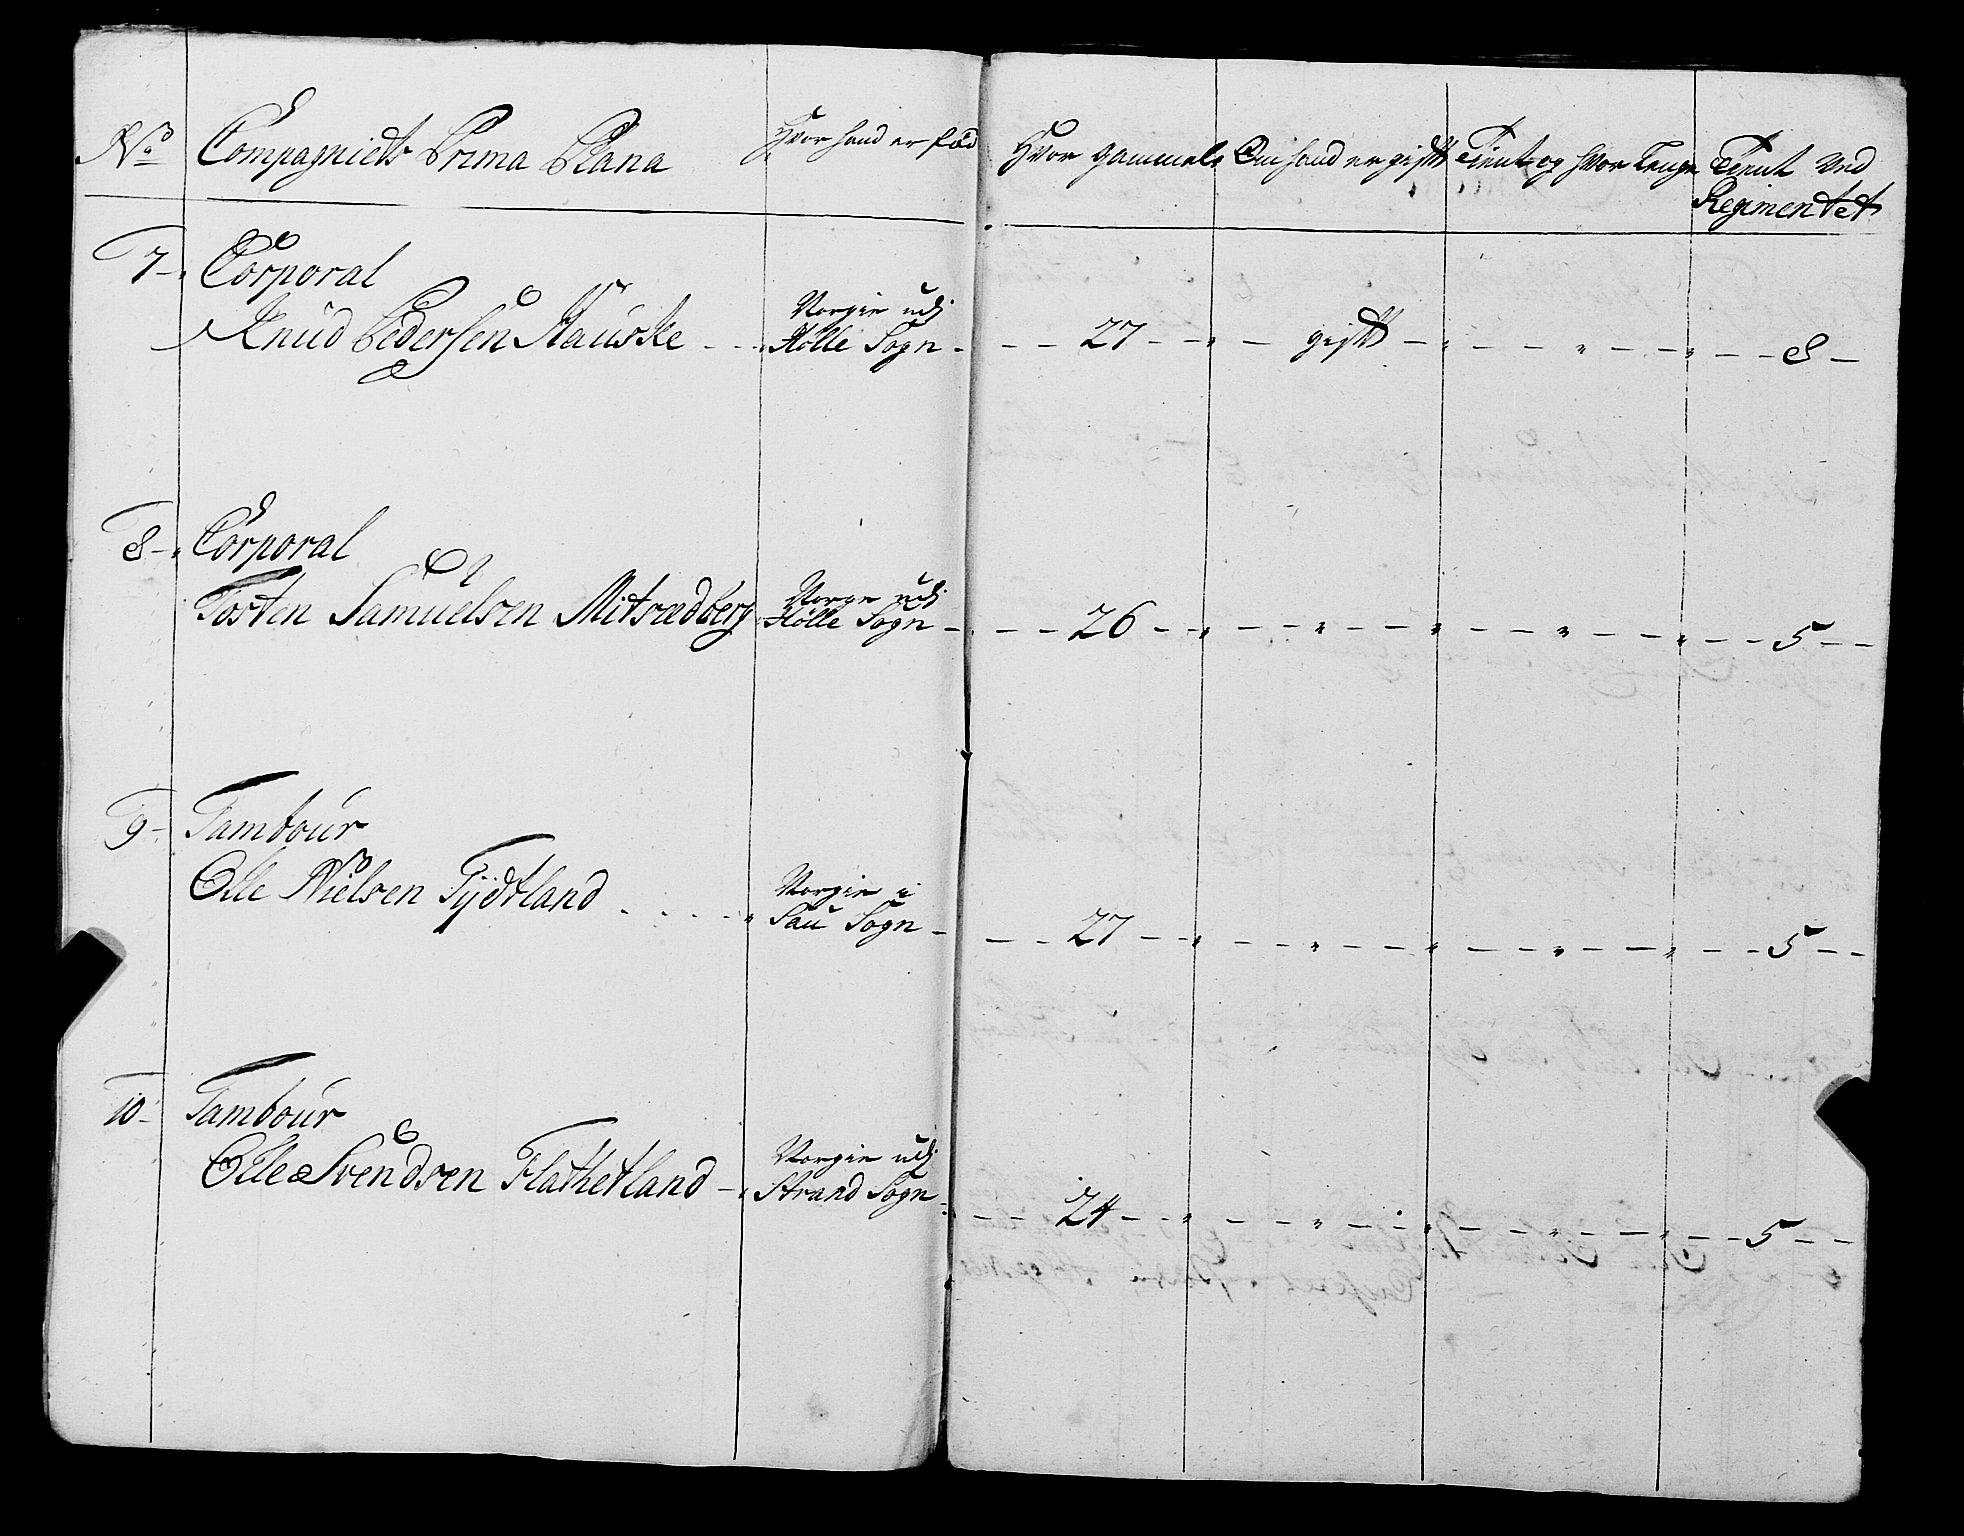 No Compagniets Prima Plana Hvor hand er fød Hvor gammel Om hand er gift Tient og hvor Lenge Tient Ved
Regimentet
7 Corporal
Knud Pedersen Hauske Norgie udj Hölle Sogn 27 gift 8
8 Corporal
Tosten Samuelsen Mitsædberg Norge udj Hölle Sogn 26 5
9 Tambour
Olle Nielsen Tÿdtland Norgie i Sau Sogn 27 5
10 Tambour
Olle Svendsen Flathetland Norgie udj Strand Sogn 24 5